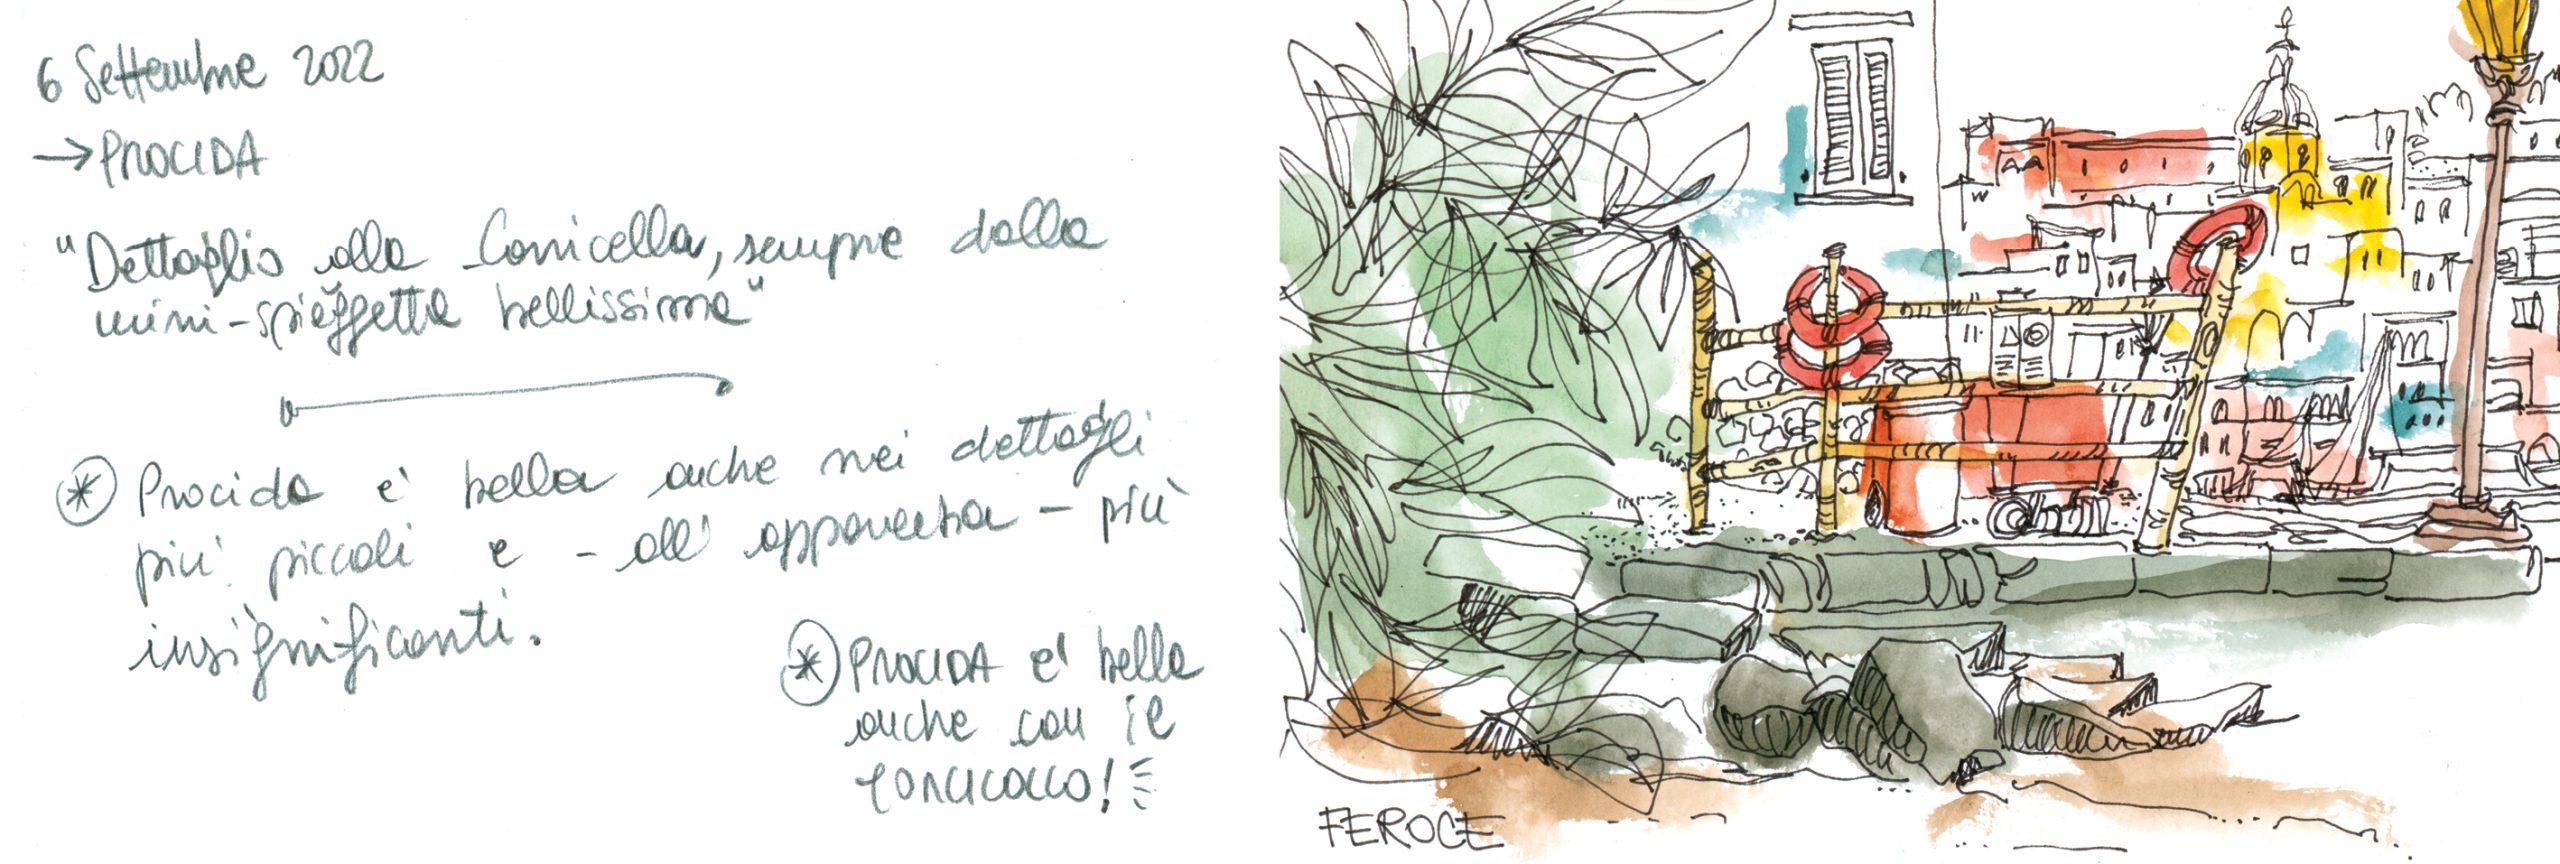 6 Settembre 2022
→ PROCIDA
"Dettaglio alla Corricella, sempre dalla
mini-spiaggetta bellissima"
* Procida e' bella anche nei dettagli
più piccoli e - all' apparenza - più
insignificanti.
* PROCIDA e' bella
anche con il
TORCICOLLO!
FEROCE